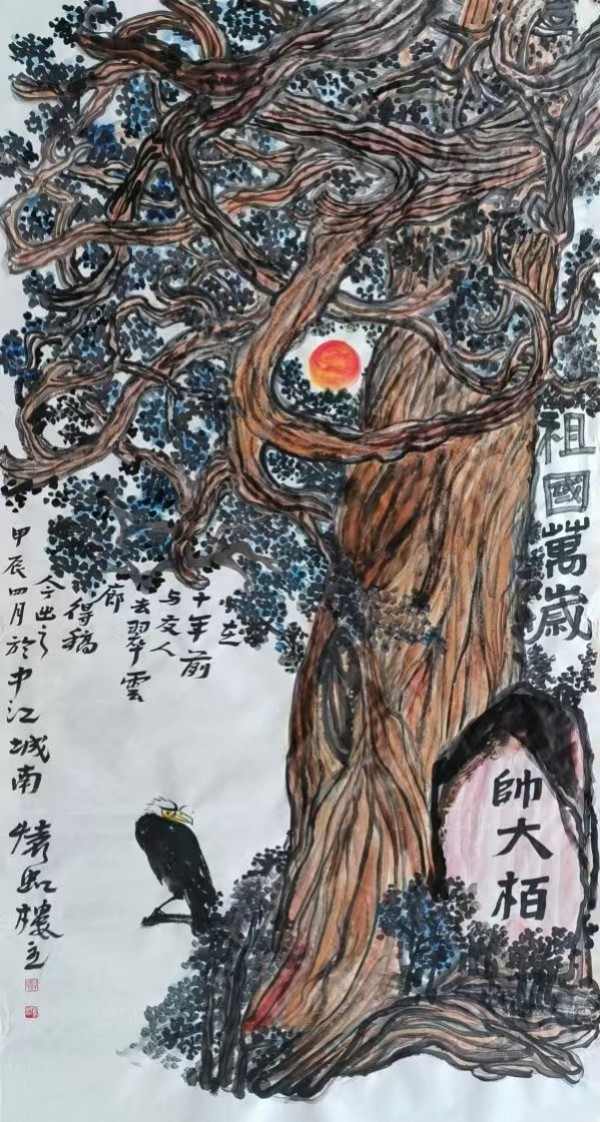 祖國萬歲
帥大栢
十年前
与友人
去翠雲
廊
得稿
今出之
甲辰四月於中江城南
樓主